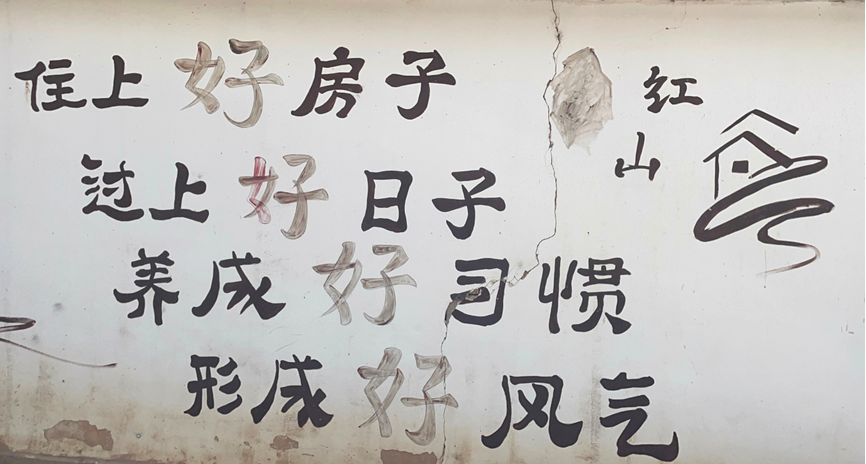 住上好房子
过上好日子
养成好习惯
形成好风气
红
山